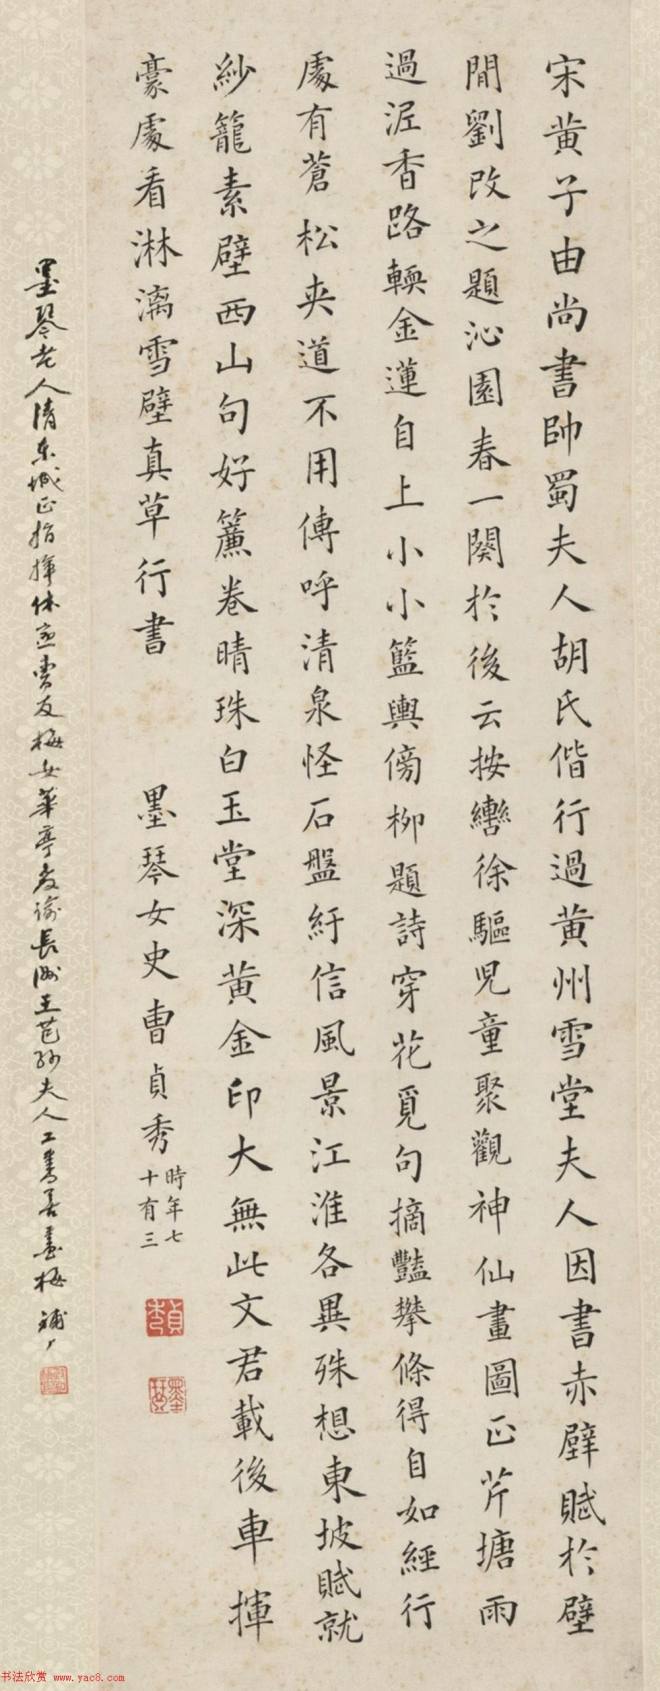 宋黄子由尚書帥蜀夫人胡氏偕行過黄州雪堂夫人因書赤壁賦於壁
間劉改之題沁園春一闋於後云按轡徐驅兒童聚觀神仙畫圖正芹塘雨
過泥香路輭金蓮自上小小籃輿傍柳題詩穿花覓句摘豔攀條得自如經行
處有蒼松夹道不用傳呼清泉怪石盤紆信風景江淮各異殊想東坡賦就
紗籠素壁西山句好簾卷晴珠白玉堂深黄金印大無此文君載後車揮
豪處看淋漓雪壁真草行書
墨琴女史曹貞秀
時年七
十有三
貞秀
墨琴
墨琴老人清東城正指揮休寧曹友梅女華亭教諭長洲王芑孫夫人工書善畫梅
书法欣赏 www.yac8.com